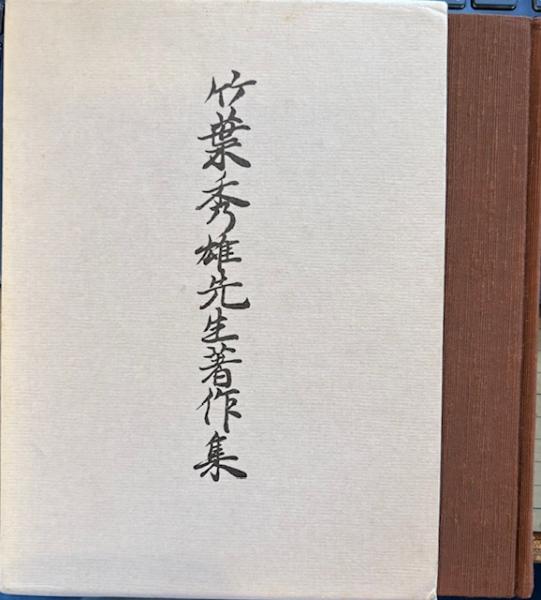 竹葉秀雄先生著作集